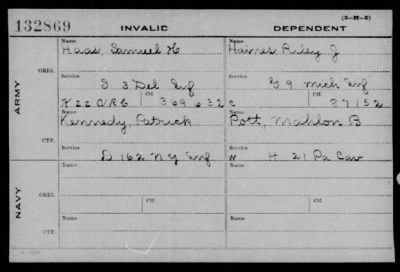 (3-H-3)
132869 INVALID DEPENDENT
Name Name
Haas, Samuel H Haines Riley J
ORIG.
Service Service
I 3 Del Inf G 9 Mich Inf
Ctf. Ctf.
369632 C 27152
ARMY
Name Name
Kennedy, Patrick Pott, Mahlon B
CTF.
Service Service
D 162 N Y Inf W H 21 Pa Cav
NAVY
Name Name
ORIG.
Ctf. Ctf.
Name Name
CTF.